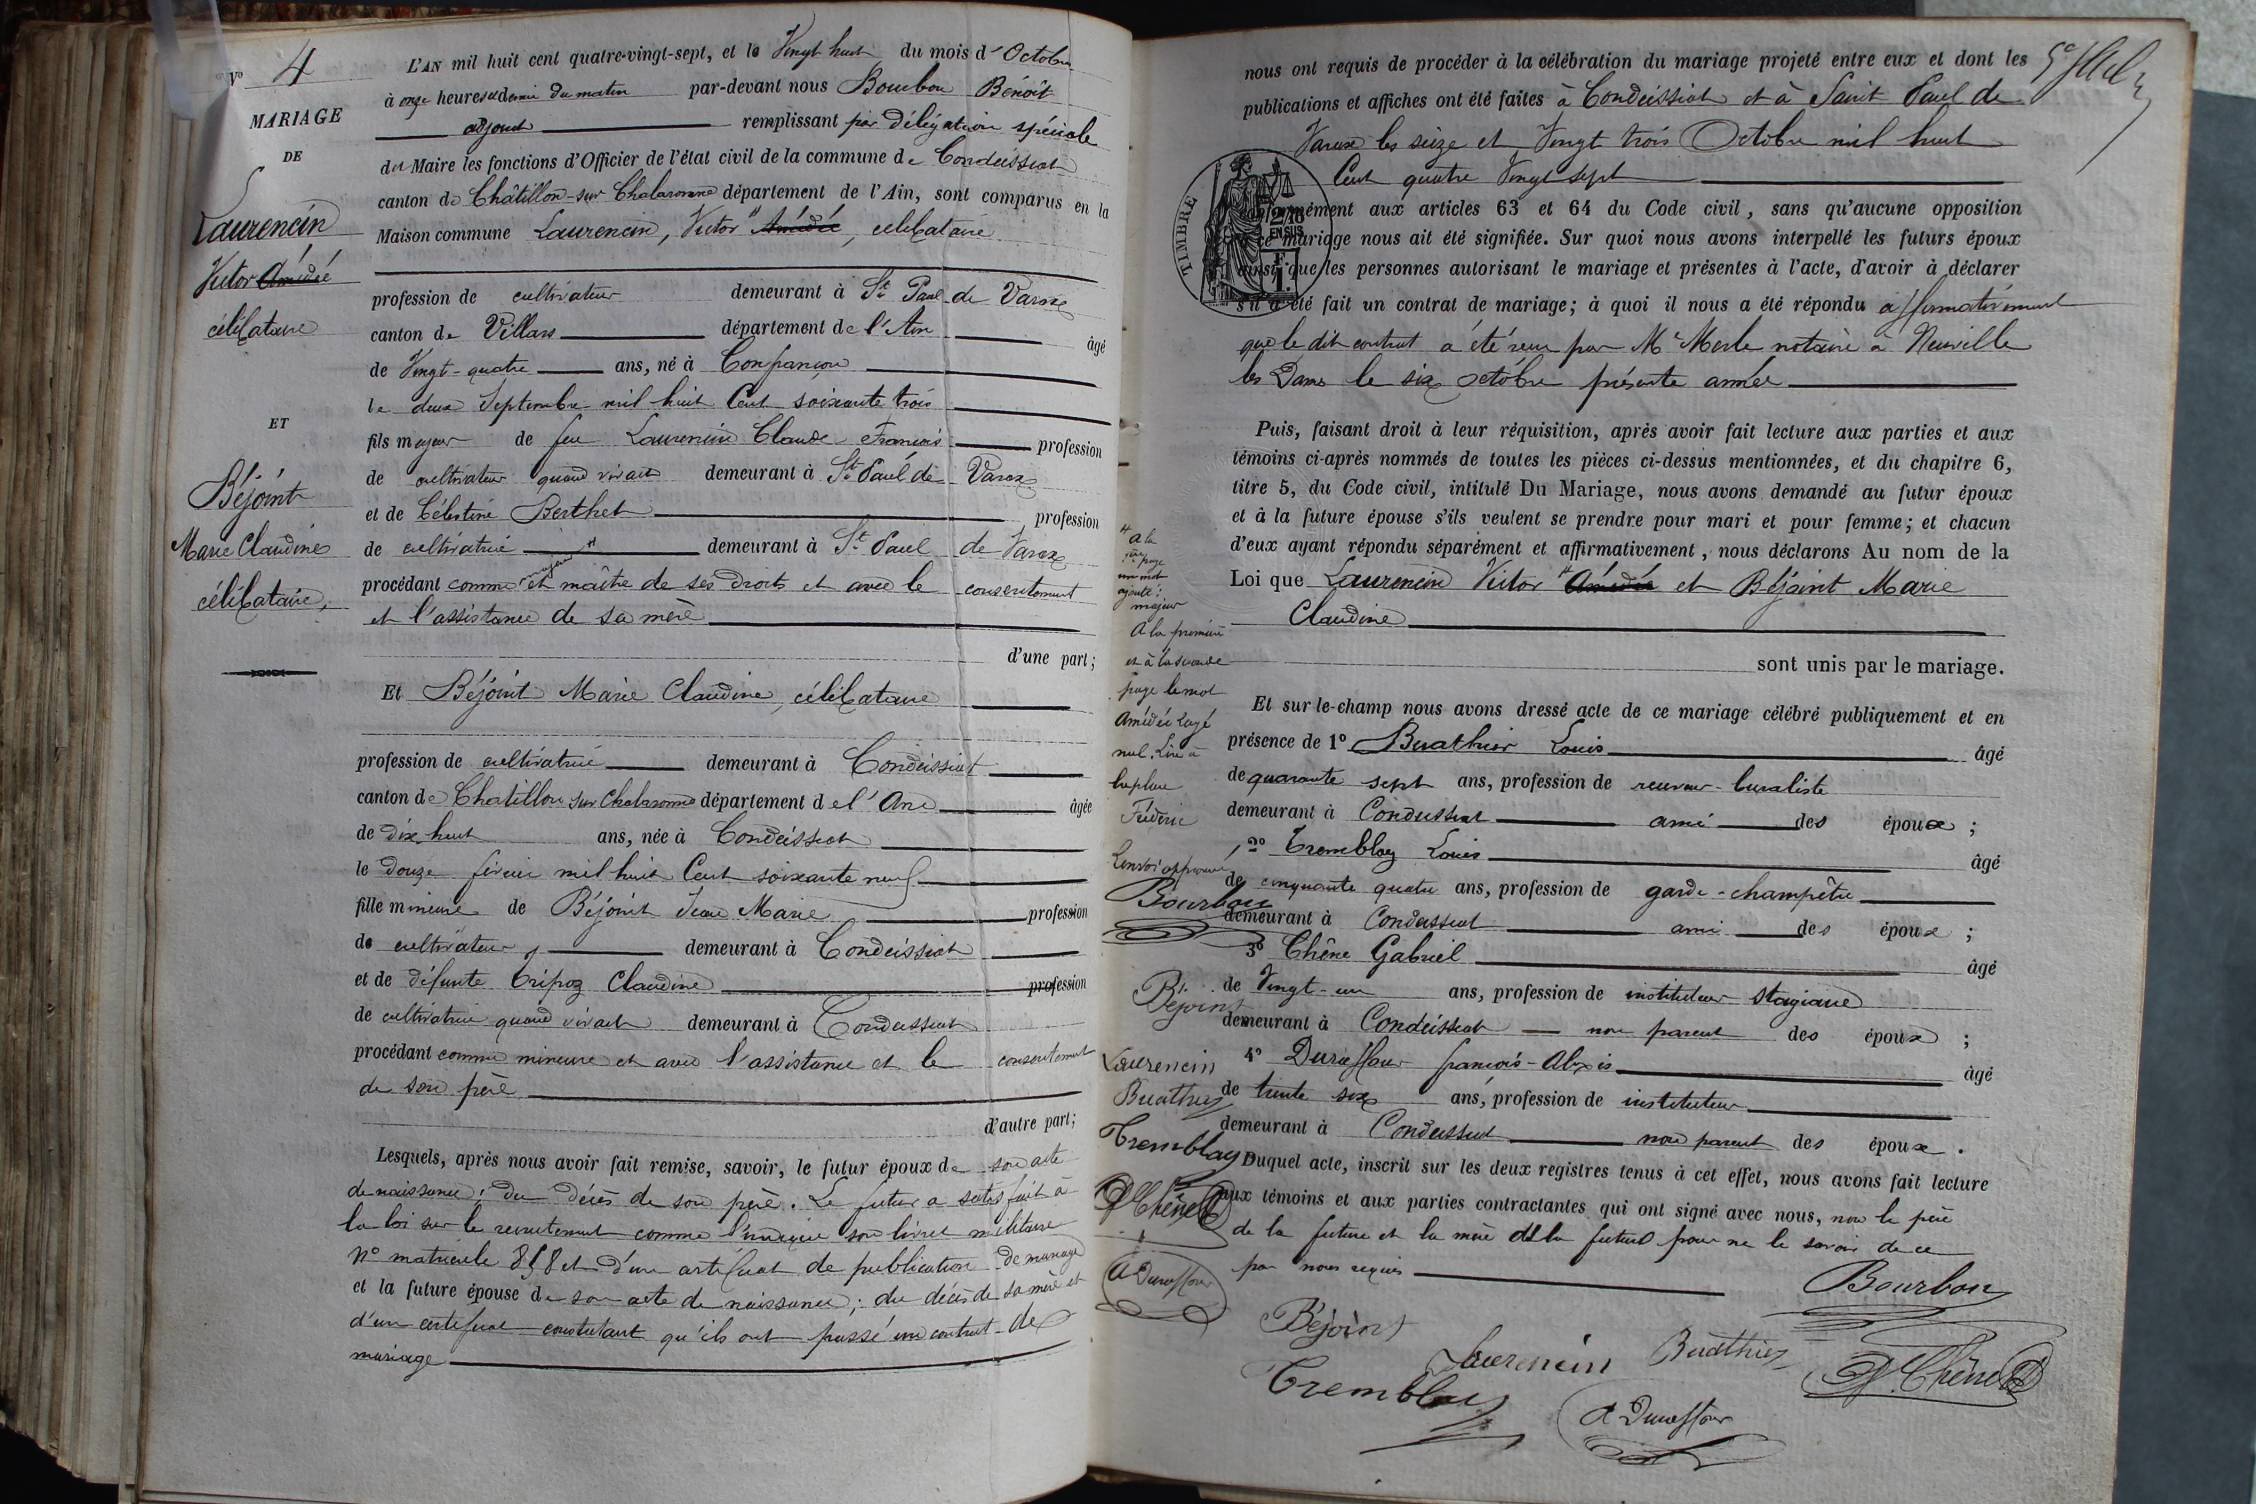 No 4
MARIAGE
DE
Laurencin
Victor Amédée
célibataire
ET
Béjoint
Marie Claudine
célibataire,
L'AN mil huit cent quatre-vingt-sept, et le Vingt huit du mois d'Octobre
à onze heures et demie du matin par-devant nous Bourbon Benoît
adjoint remplissant par délégation spéciale
du Maire les fonctions d'Officier de l'état civil de la commune de Condeissiat
canton de Châtillon-sur Chalaronne département de l'Ain, sont comparus en la
Maison commune Laurencin, Victor Amédée, célibataire
profession de cultivateur demeurant à St Paul de Varax
canton de Villars département de l'Ain âgé
de Vingt-quatre ans, né à Confrançon
le deux Septembre mil huit Cent soixante trois
fils majeur de feu Laurencin Claude François profession
de cultivateur quand vivait demeurant à St Paul de Varax
et de Célestine Berthet profession
de cultivatrice demeurant à St Paul de Varax
procédant comme majeur et maître de ses droits et avec le consentement
et l'assistance de sa mère
d'une part;
Et Béjoint Marie Claudine, célibataire
profession de cultivatrice demeurant à Condeissiat
canton de Chatillon sur Chalaronne département de l'Ain âgée
de dix huit ans, née à Condeissiat
le douze février mil huit Cent soixante neuf
fille mineure de Béjoint Jean Marie profession
de cultivateur, demeurant à Condeissiat
et de défunte Tripoz Claudine profession
de cultivatrice quand vivait demeurant à Condeissiat
procédant comme mineure et avec l'assistance et le consentement
de son père
d'autre part;
Lesquels, après nous avoir fait remise, savoir, le futur époux de son acte
de naissance; du décès de son père. Le futur a satisfait à
la loi sur le recrutement comme l'indique son livret militaire
No matricule 858 et d'un certificat de publication de mariage
et la future épouse de son acte de naissance; du décès de sa mère et
d'un certificat constatant qu'ils ont passé un contrat de
mariage
nous ont requis de procéder à la célébration du mariage projeté entre eux et dont les
publications et affiches ont été faites à Condeissiat et à Saint Paul de
Varax les seize et Vingt trois Octobre mil huit
Cent quatre Vingt sept
TIMBRE
2/10
EN SUS
conformément aux articles 63 et 64 du Code civil, sans qu'aucune opposition
à ce mariage nous ait été signifiée. Sur quoi nous avons interpellé les futurs époux
ainsi que les personnes autorisant le mariage et présentes à l'acte, d'avoir à déclarer
s'il a été fait un contrat de mariage; à quoi il nous a été répondu affirmativement
que le dit contrat a été reçu par Me Merle notaire à Neuville
les Dames le six octobre présente année
Puis, faisant droit à leur réquisition, après avoir fait lecture aux parties et aux
témoins ci-après nommés de toutes les pièces ci-dessus mentionnées, et du chapitre 6,
titre 5, du Code civil, intitulé Du Mariage, nous avons demandé au futur époux
et à la future épouse s'ils veulent se prendre pour mari et pour femme; et chacun
d'eux ayant répondu séparément et affirmativement, nous déclarons Au nom de la
Loi que Laurencin Victor Amédée et Béjoint Marie
Claudine
sont unis par le mariage.
Et sur-le-champ nous avons dressé acte de ce mariage célébré publiquement et en
présence de 1o Buathier Louis âgé
de quarante sept ans, profession de receveur-buraliste
demeurant à Condeissiat ami des époux;
2o Tremblay Louis âgé
de cinquante quatre ans, profession de garde-champêtre
demeurant à Condeissiat ami des époux;
3o Chêne Gabriel âgé
de Vingt-un ans, profession de instituteur stagiaire
demeurant à Condeissiat non parent des époux;
4o Duraffour françois-Alexis âgé
de trente six ans, profession de instituteur
demeurant à Condeissiat non parent des époux.
Duquel acte, inscrit sur les deux registres tenus à cet effet, nous avons fait lecture
aux témoins et aux parties contractantes qui ont signé avec nous, non le père
de la future et la mère du futur pour ne le savoir de ce
par nous requis
Bourbon
Béjoint
Laurencin
Buathier
G. Chêne
Tremblay
A Duraffour
à la
1ère page
un mot
ajouté:
majeur
A la première
et à la seconde
page le mot
Amédée rayé
nul. Lire à
la place
Féderic
Renvoi approuvé
Bourbon
Béjoint
Laurencin
Buathier
Tremblay
G Chêne
A Duraffour